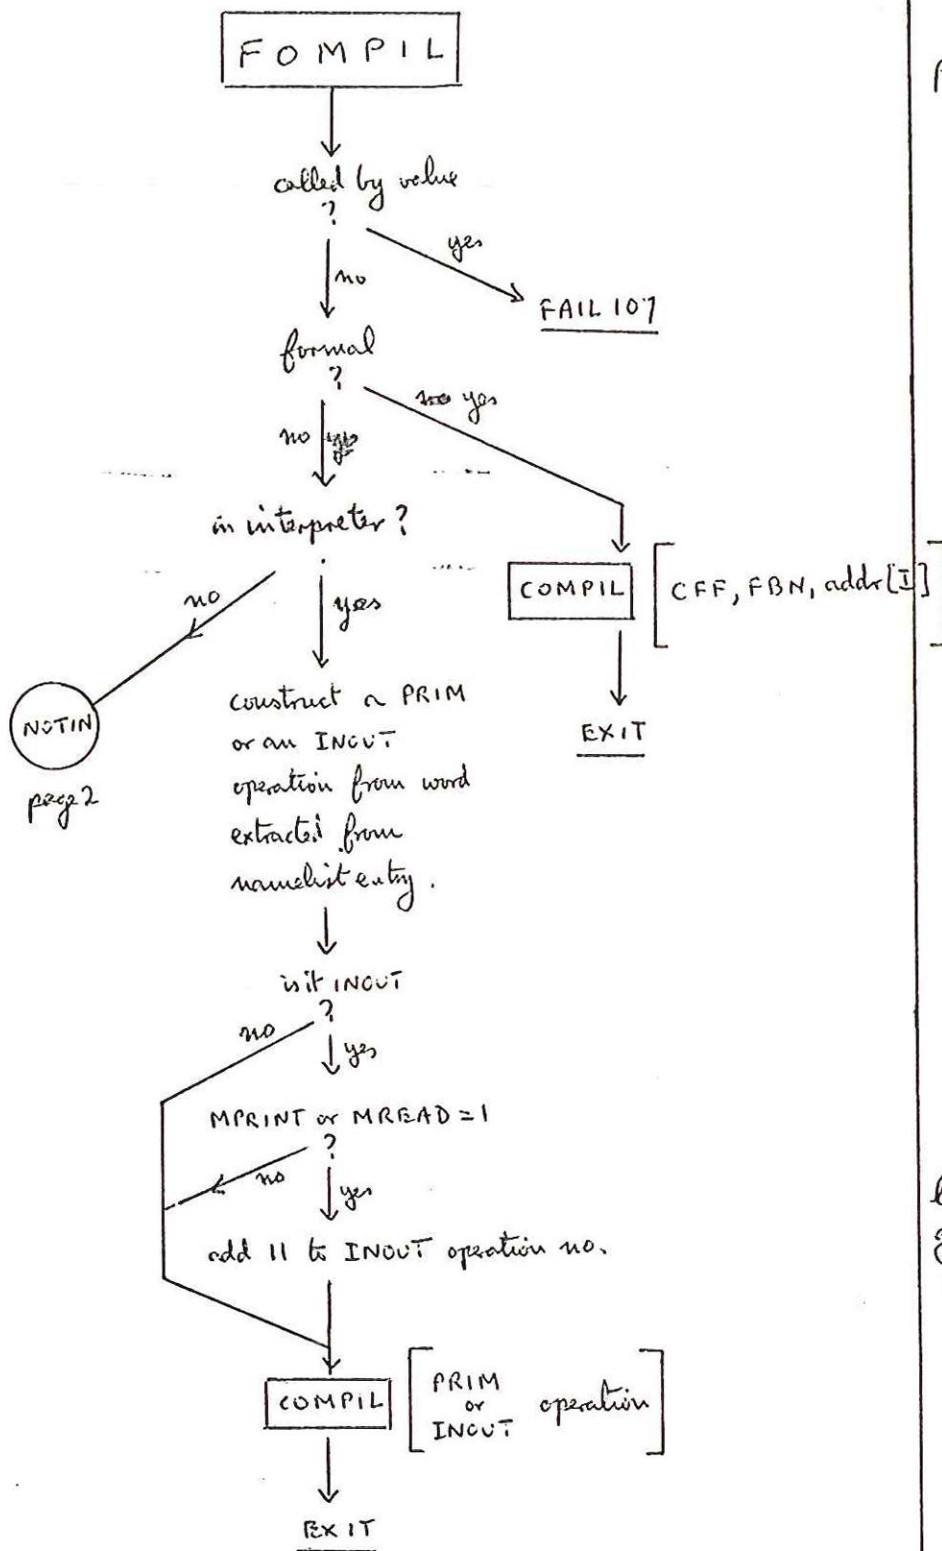 FOMPIL
called by value
?
yes
no
FAIL 107
formal
?
no yes
no
in interpreter?
no
yes
COMPIL [CFF, FBN, addr[I]]
EXIT
NOTIN
page 2
construct a PRIM
or an INOUT
operation from word
extracted from
namelist entry.
is it INOUT
?
no
yes
MPRINT or MREAD = 1
?
no
yes
add 11 to INOUT operation no.
COMPIL [PRIM
or operation]
INOUT
EXIT